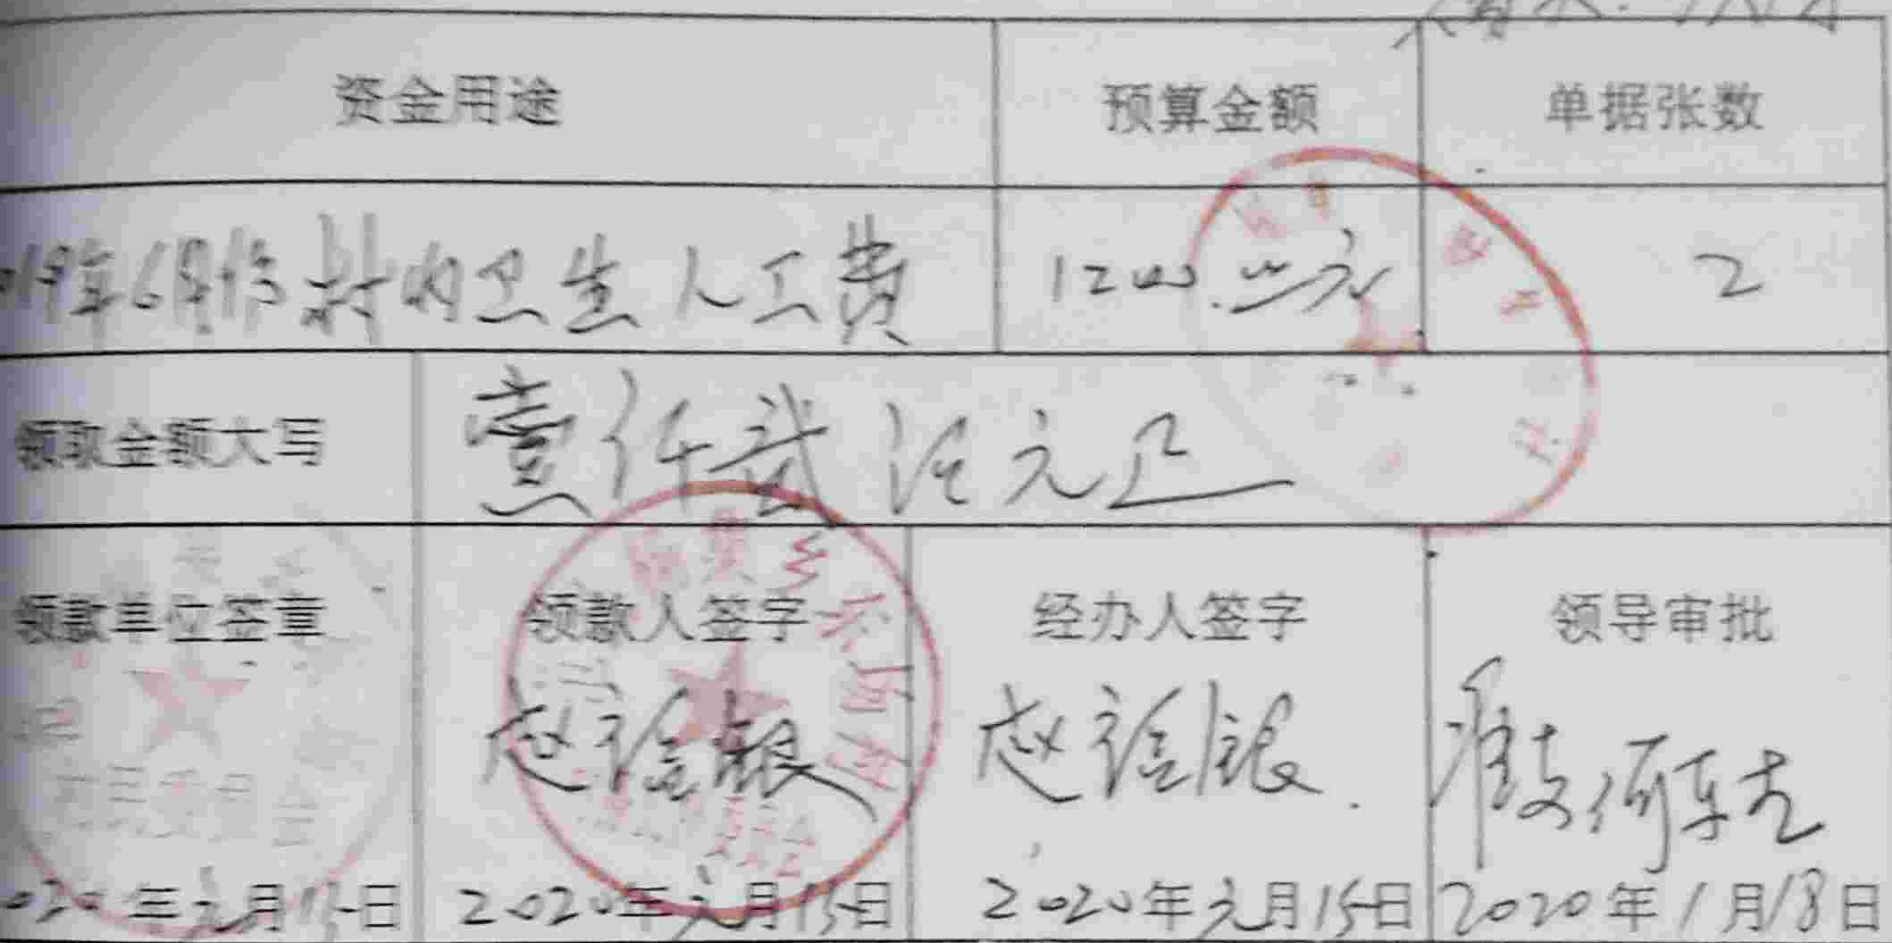 资金用途 预算金额 单据张数
019年6月份村内卫生人工费 1200.00元 2
领取金额大写 壹仟贰佰元正
领款单位签章 领款人签字 经办人签字 领导审批
赵 银 赵 银 准支
020年元月15日 2020年元月15日 2020年元月15日 2020年1月18日